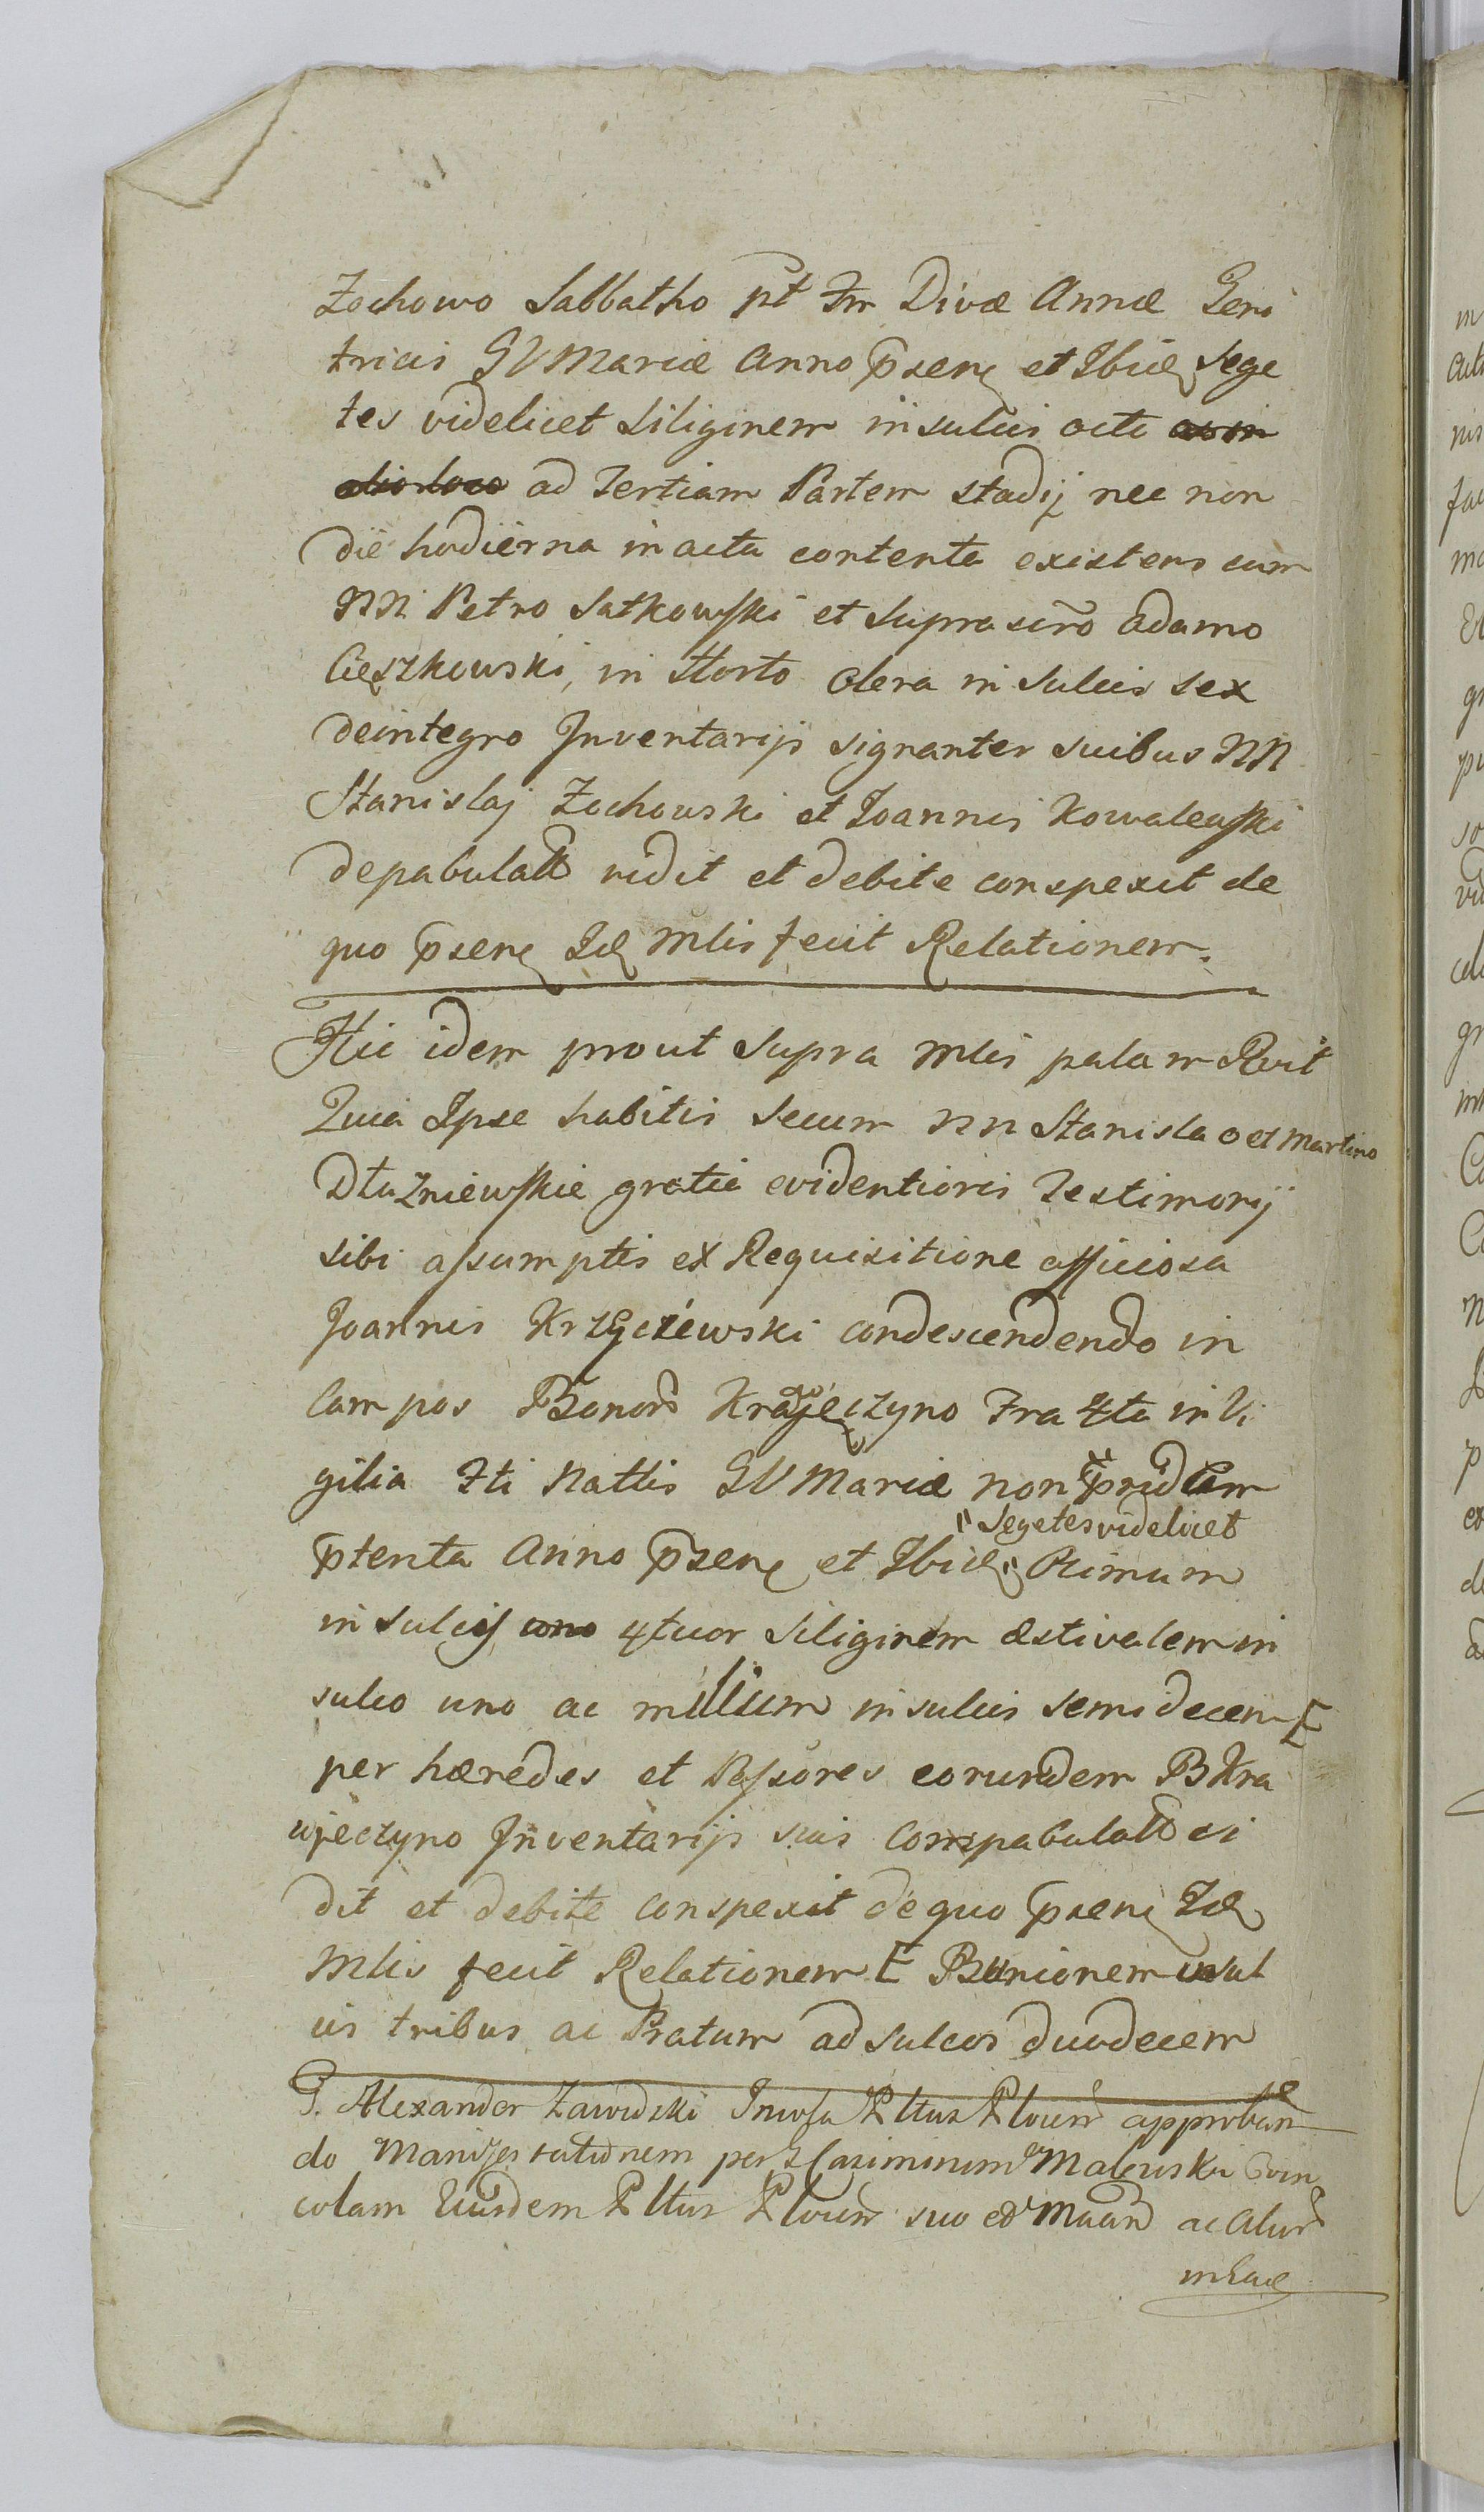 Zochowo Sabbatho pt Fm Divæ Annæ Geni
tricis GVMariæ Anno p̄sen et Ibid Sege
tes videlicet Siliginem in sulcis octo
ad Tertiam Partem stadij nec non
die hodierna in acta contenta existens cum
NN Petro Sutkowski et suprascr̄o Adamo
Cieszkowski, in Horto Olera in Sulcis sex
deintegro Inventarijs signanter suibus NN
Stanislaj Zochowski et Joannis Kowalewski
depabulatt vidit et debite conspexit de
quo p̄sen Id Mlis fecit Relationem.
Hic idem prout supra Mlis palam Rvit
Quia Ipse habitis secum NN Stanislao et Martino
Dłuzniewskie gratia evidentioris Testimonij
sibi assumptis ex Requisitione officiosa
Joannis Krzyczewski condescendendo in
Campos Bonor Krajeczyno Fra 4ta in Vi
gilia Fti Nattis GVMariæ non pridem
p̄tenta Anno p̄sen et Ibid " Segetes videlicet " Primum
in sulcis 4tuor Siliginem æstivalem in
sulco uno ac milium in sulcis semidecem E
per hæredes et Possores eorundem B Kra
wjeczyno Inventarijs suis compabulatt vi
dit et debite conspexit de quo p̄sen Id
Mlis fecit Relationem E Bunionem in sul
cis tribus ac Pratum ad sulcos duodecem
G. Alexander Zawidzki Incola Pltus Plocen approban
do Manifestationem per G Casimirum Malewski Coin
colam Eiusdem Pltus Plocen suo et
in Eund